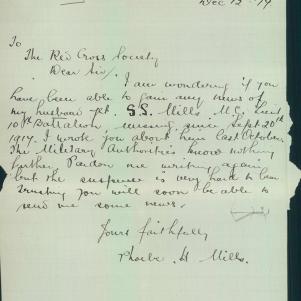 Dec 12th 19
To
The Red Cross Society
Dear Sir/.
I am wondering if you
have been able to gain any news of
my husband Sgt. S.S. Mills M.G. Sect
10th Battalion missing since Sept 20th
1917. I wrote you about him last October
The Military Authorities know nothing
further Pardon me writing again,
but the suspense is very hard to bear
trusting you will soon be able to
send me some news.
Yours faithfully
Phoebe H Mills.